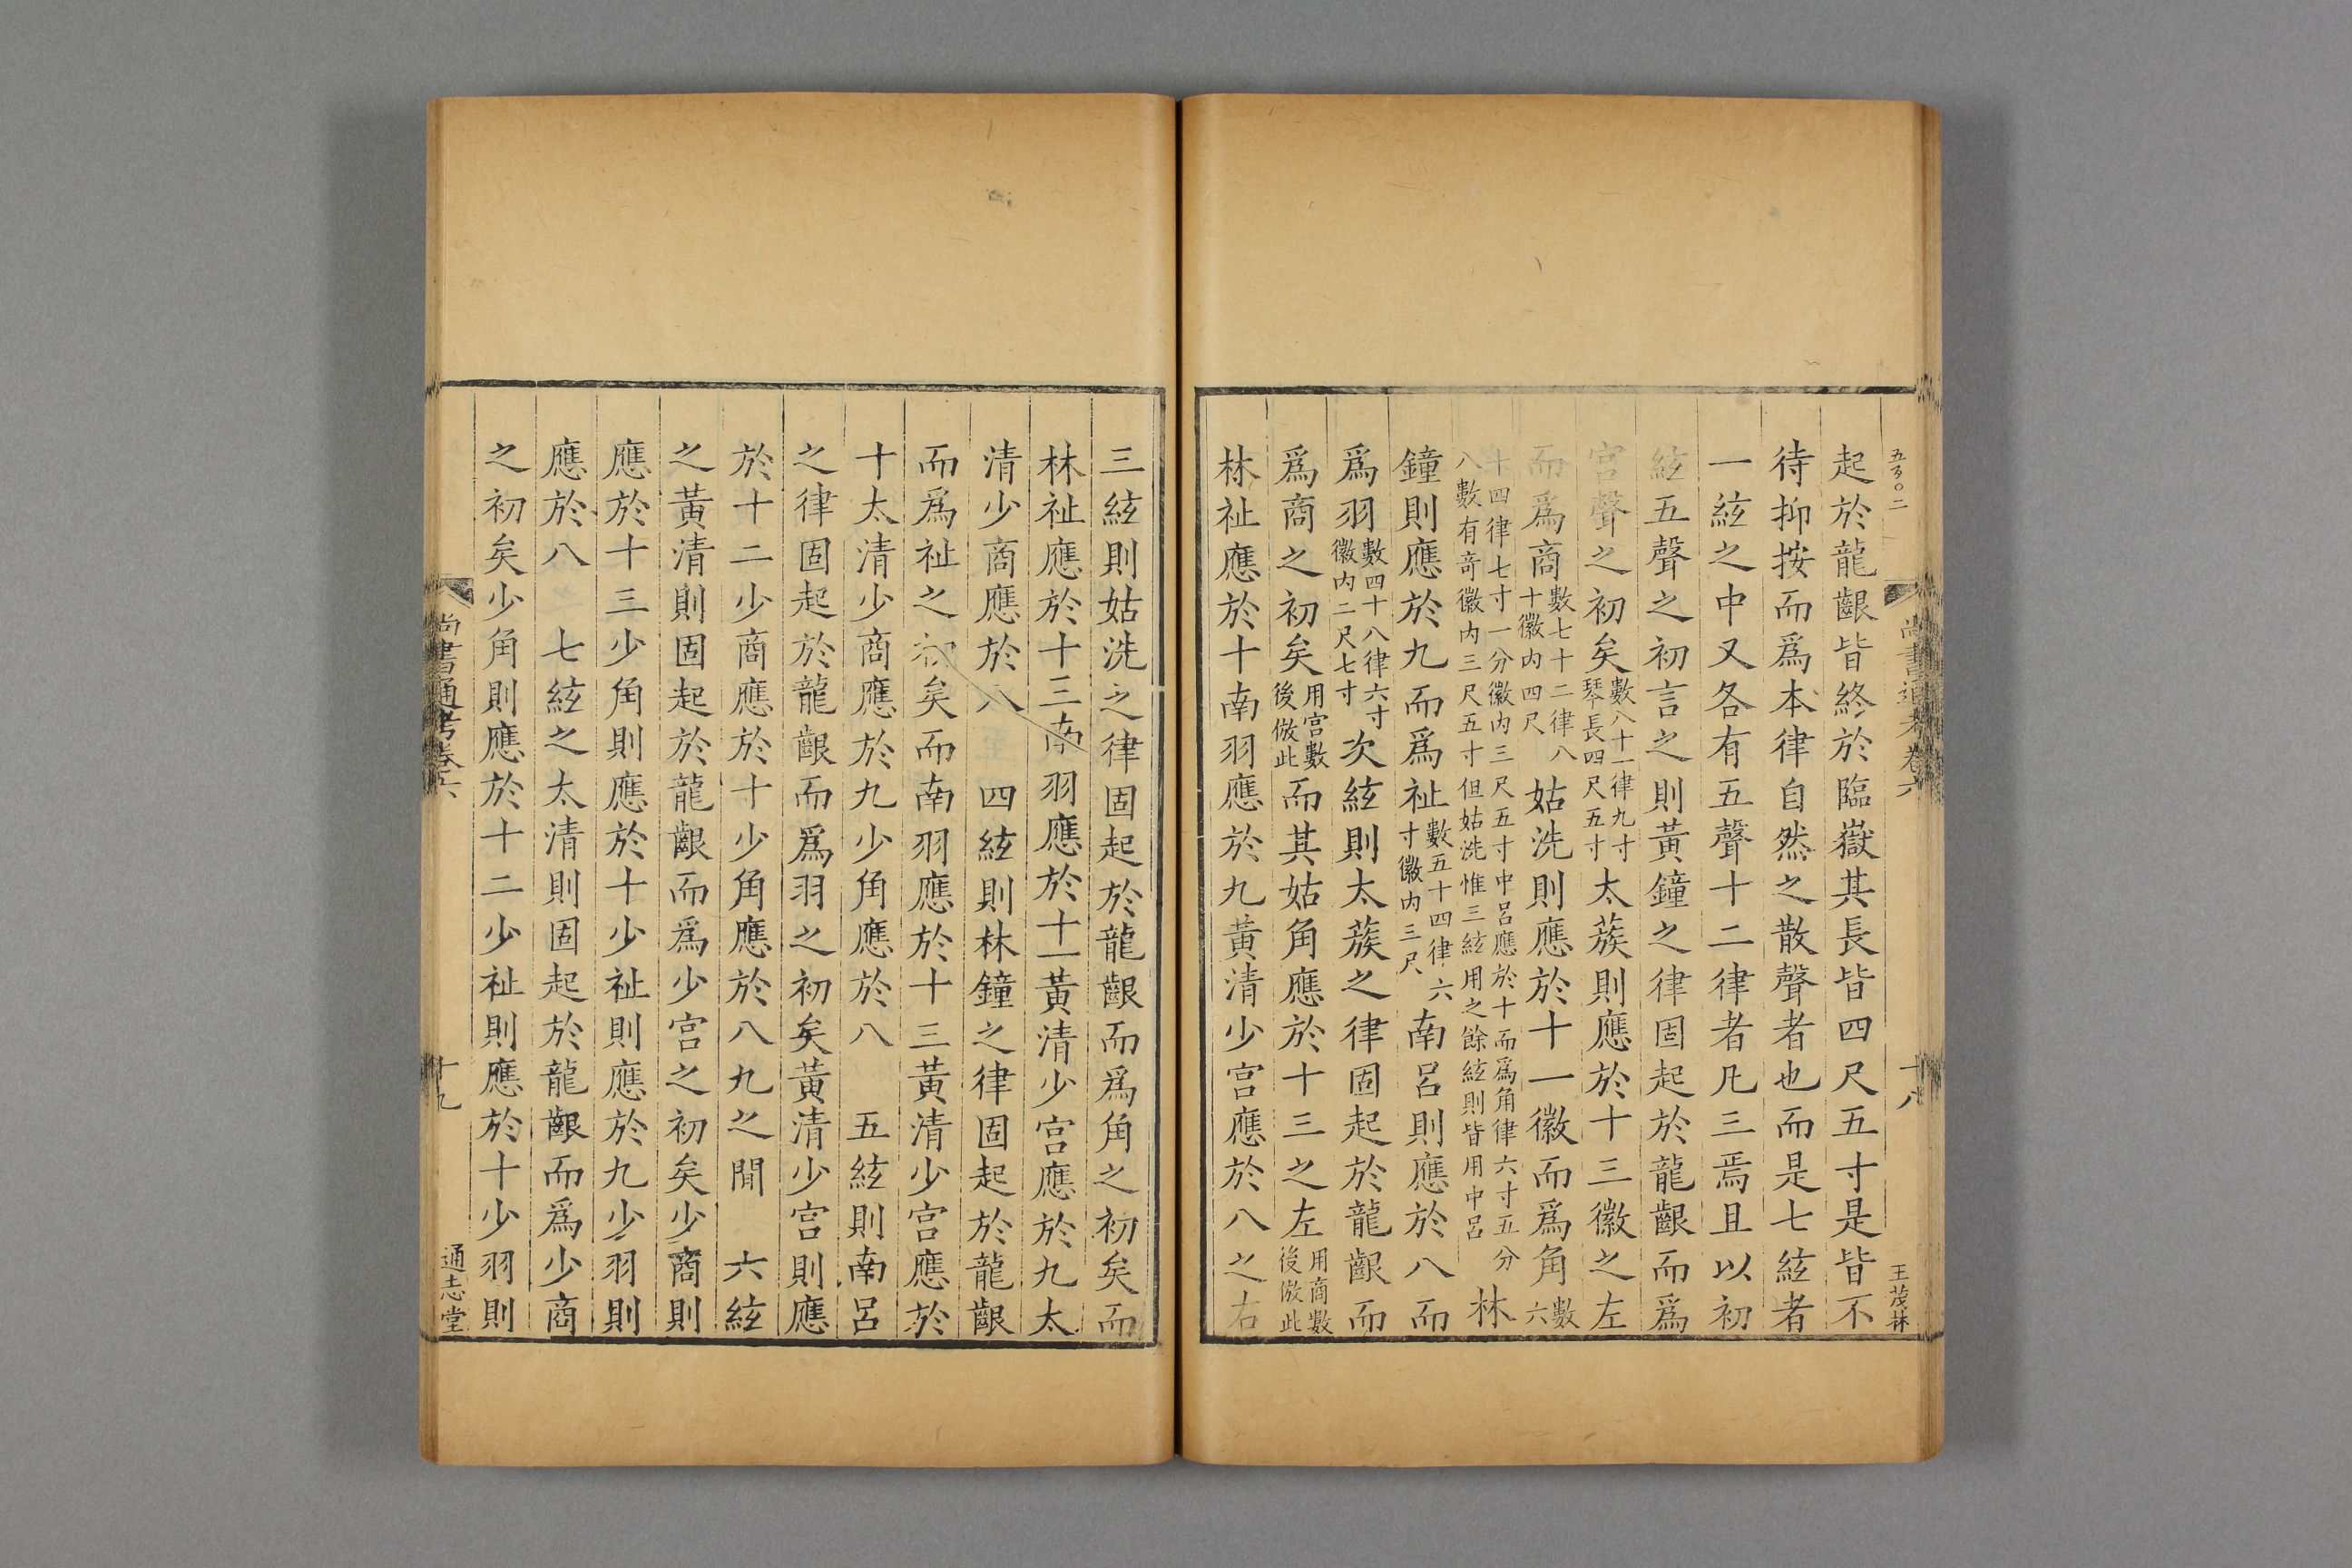 五百〇二
尚書通考卷六 十八 王茂林
起於龍齦皆終於臨嶽其長皆四尺五寸是皆不
待抑按而爲本律自然之散聲者也而是七絃者
一絃之中又各有五聲十二律者凡三焉且以初
絃五聲之初言之則黃鐘之律固起於龍齦而爲
宮聲之初矣數八十一律九寸琴長四尺五寸太蔟則應於十三徽之左
而爲商數七十二律八十徽内四尺姑洗則應於十一徽而爲角數六
十四律七寸一分徽内三尺五寸中呂應於十而爲角律六寸五分八數有奇徽内三尺五寸但姑洗惟三絃用之餘絃則皆用中呂林
鐘則應於九而爲祉數五十四律六寸徽内三尺南呂則應於八而
爲羽數四十八律六寸徽内二尺七寸次絃則太蔟之律固起於龍齦而
爲商之初矣用宮數後倣此而其姑角應於十三之左用商數後倣此
林祉應於十南羽應於九黃清少宮應於八之右
三絃則姑洗之律固起於龍齦而爲角之初矣而
林祉應於十三南羽應於十一黃清少宮應於九太
清少商應於八 四絃則林鐘之律固起於龍齦
而爲祉之初矣而南羽應於十三黃清少宮應於
十太清少商應於九少角應於八 五絃則南呂
之律固起於龍齦而爲羽之初矣黃清少宮則應
於十二少商應於十少角應於八九之間 六絃
之黃清則固起於龍齦而爲少宮之初矣少商則
應於十三少角則應於十少祉則應於九少羽則
應於八 七絃之太清則固起於龍齦而爲少商
之初矣少角則應於十二少祉則應於十少羽則
尚書通考卷六 十九 通志堂